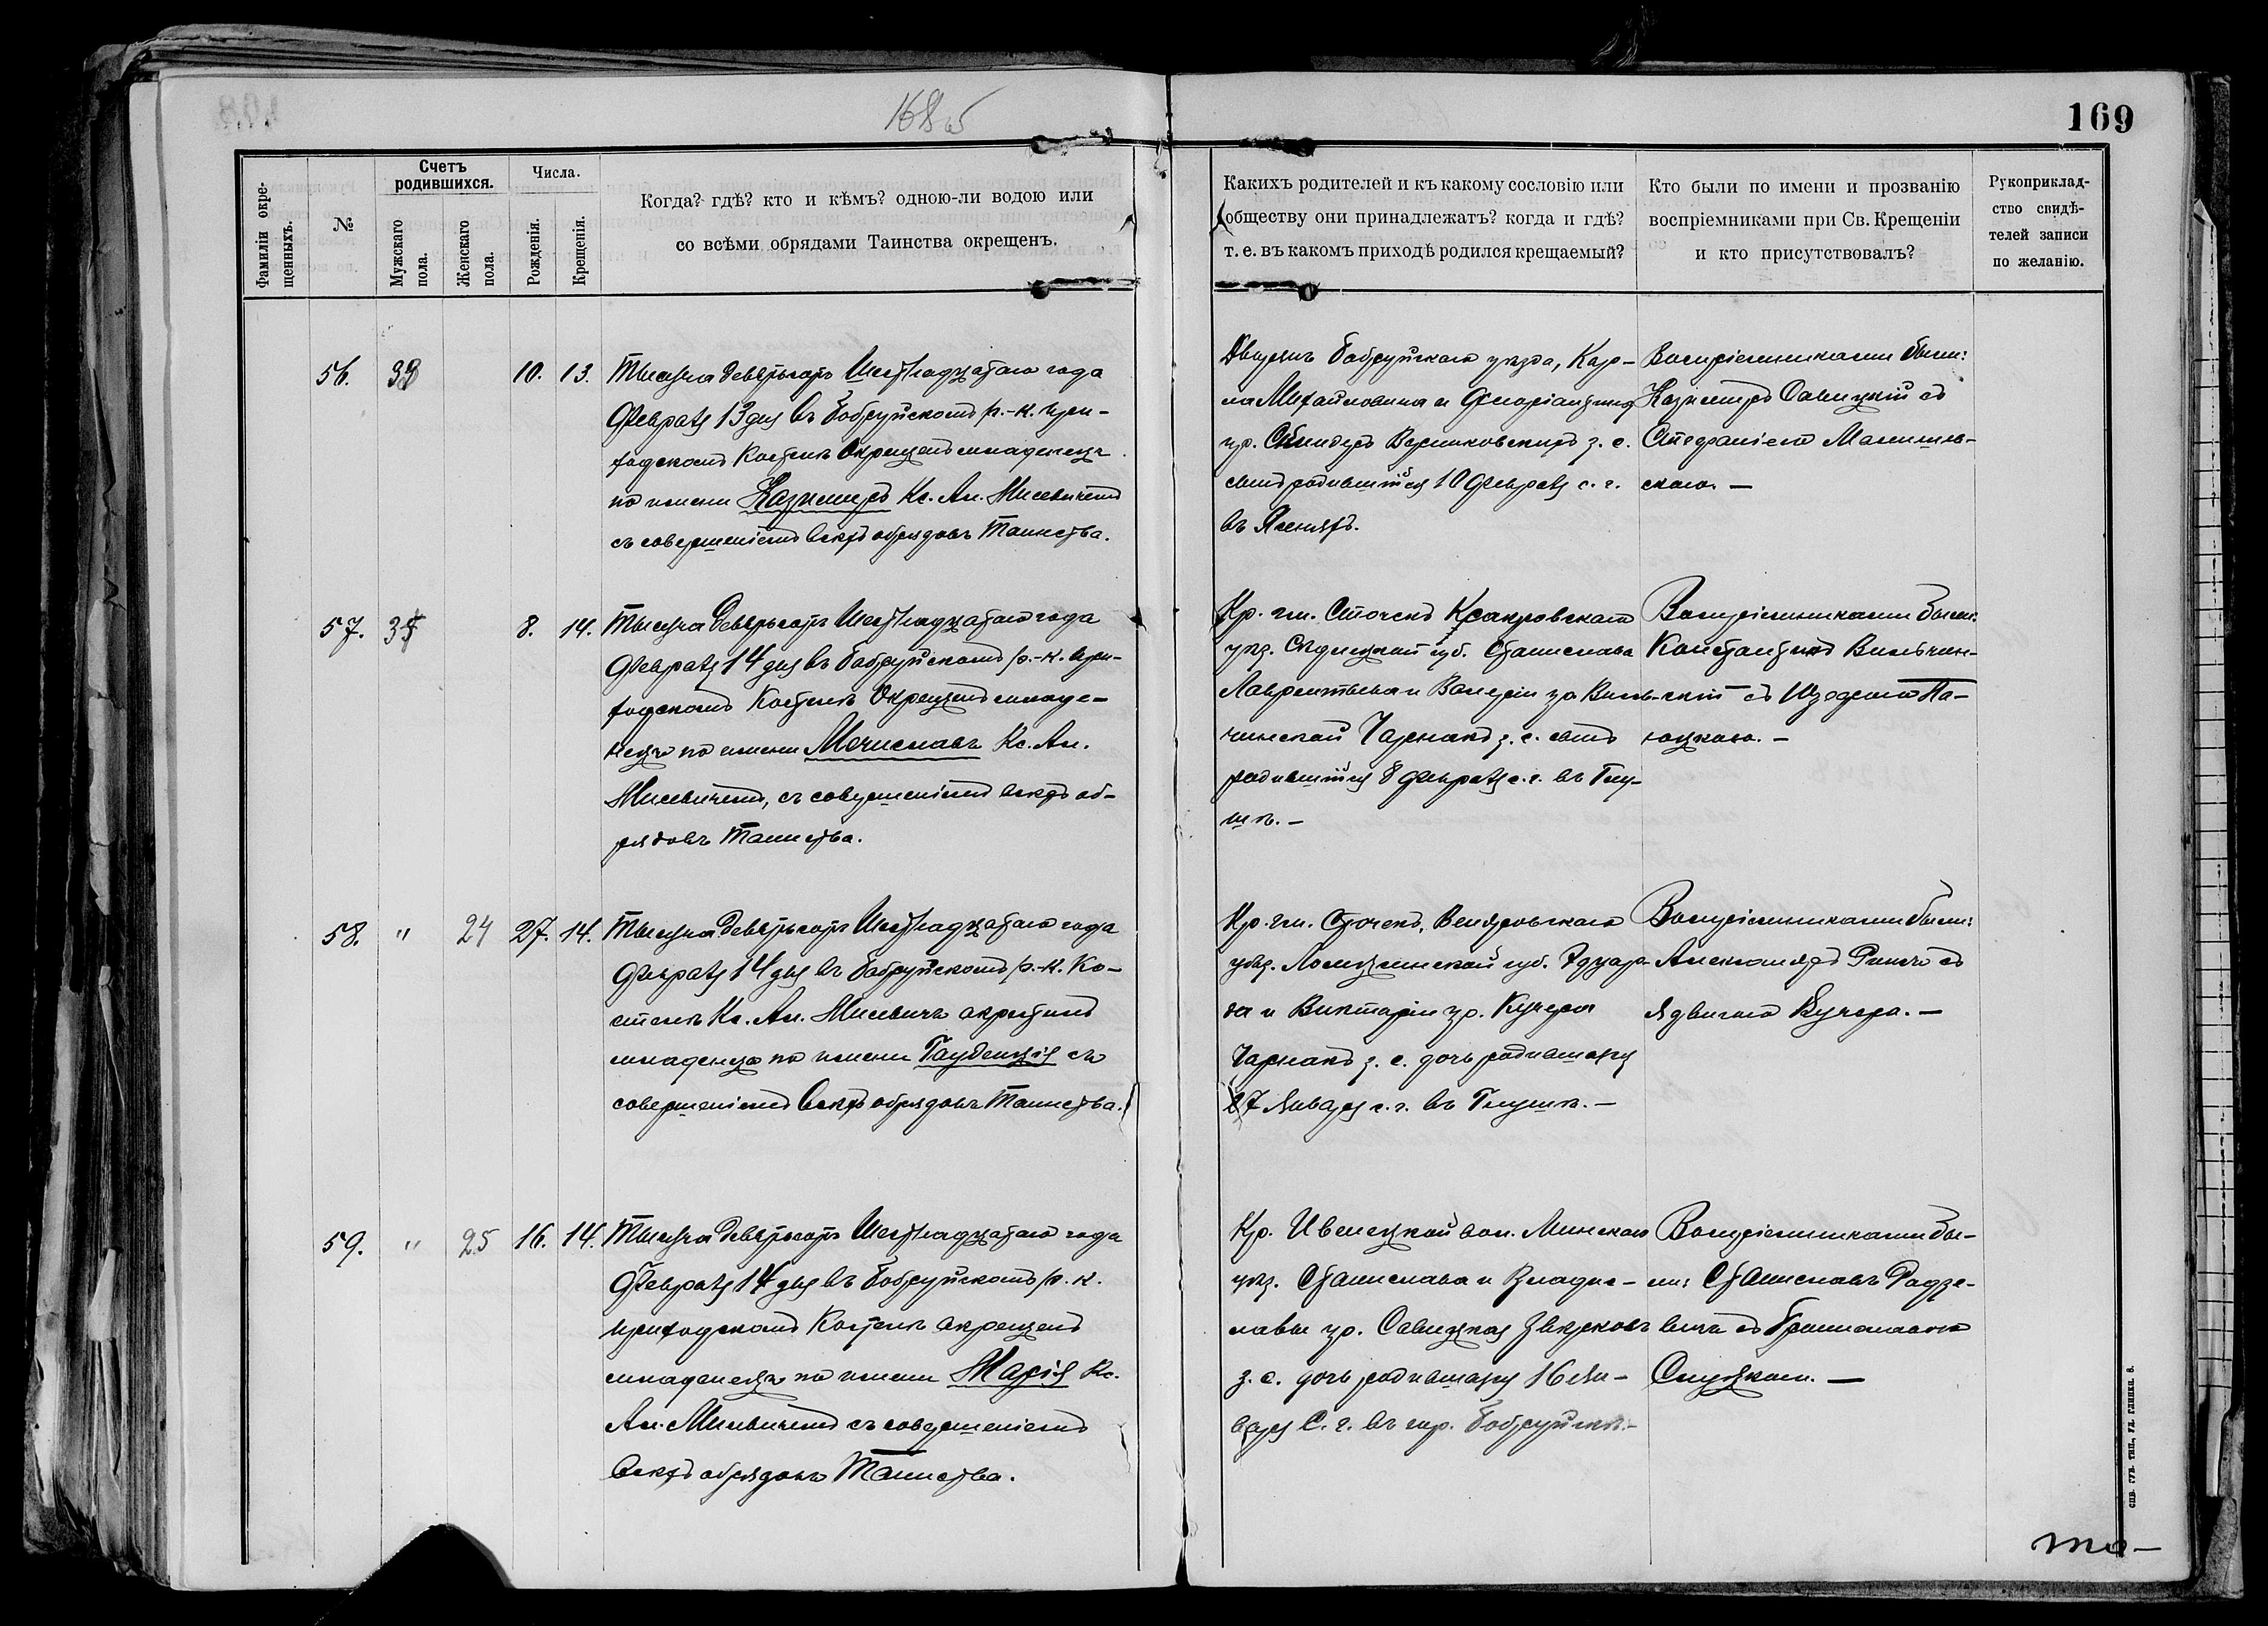 168 об
169
Фамиліи окре-
щенныхъ.
№
Счетъ
родившихся.
Мужскаго
пола.
Женскаго
пола.
Числа.
Рожденія.
Крещенія.
Когда? гдѣ? кто и кѣмъ? одною-ли водою или
со всѣми обрядами Таинства окрещенъ.
Какихъ родителей и къ какому сословію или
обществу они принадлежатъ? когда и гдѣ?
т. е. въ какомъ приходѣ родился крещаемый?
Кто были по имени и прозванію
воспріемниками при Св. Крещеніи
и кто присутствовалъ?
Рукоприклад-
ство свидѣ-
телей записи
по желанію.
56.
10. 13.
Тысяча девятьсотъ Шестнадцатаго года
Февраля 13 дня въ Бобруйскомъ р.-к. при-
ходскомъ Костелѣ окрещенъ младенецъ
по имени Казимиръ Кс. Ал. Мисевичемъ
съ совершеніемъ всѣхъ обрядовъ Таинства.
Дворянъ Бобруйскаго уѣзда, Кар-
ла Михайловича и
ур. з. с.
сынъ родившійся 10 Февраля с. г.
въ
Воспріемниками были:
Казимиръ Савицкій съ
Стефаніею
скаго. —
57.
8. 14.
Тысяча девятьсотъ Шестнадцатаго года
Февраля 14 дня въ Бобруйскомъ р.-к. при-
ходскомъ Костелѣ Окрещенъ младе-
нецъ по имени Мечиславъ Кс. Ал.
Мисевичемъ, съ совершеніемъ всѣхъ об-
рядовъ Таинства.
Кр. гм. Сточекъ
уѣз. Сѣдлецкой губ. Станислава
Лаврентьева и Валеріи ур Виль-
чинской Чарнакъ з. с. сынъ
родившійся 8 Февраля с. г. въ Глу-
шѣ. —
Воспріемниками были:
Константинъ Вильчин-
скій съ Изодорою Па-
58.
" 24 27. 14.
Тысяча девятьсотъ Шестнадцатаго года
Февраля 14 дня въ Бобруйскомъ р.-к. Ко-
стелѣ Кс. Ал. Мисевичъ окрестилъ
младенца по имени Гауденція съ
совершеніемъ всѣхъ обрядовъ Таинства.
Кр. гм. Сточекъ, Венгровскаго
уѣз. Ломжинской губ. Эдуар-
да и Викторіи ур. Кучера
Чарнакъ з. с. дочь родившаяся
27 Января с. г. въ Глушѣ. —
Воспріемниками были:
Александръ съ
Ядвигою Кучера. —
59.
" 25 16. 14.
Тысяча девятьсотъ Шестнадцатаго года
Февраля 14 дня въ Бобруйскомъ р. к.
приходскомъ Костелѣ окрещенъ
младенецъ по имени Марія Кс.
Ал. Мисевичемъ съ совершеніемъ
всѣхъ обрядовъ Таинства.
Кр. Ивенецкой вол. Минскаго
уѣз. Станислава и Владис-
лавы ур. Савицкая Звѣрковъ
з. с. дочь родившаяся 16 Ян-
варя С. г. въ гор. Бобруйскѣ. —
Воспріемниками бы-
ли: Станиславъ Радзе-
вичъ съ
Слуцкою. —
СПВ. ГУБ. ТИП., УЛ. ГЛИНКИ, 8.